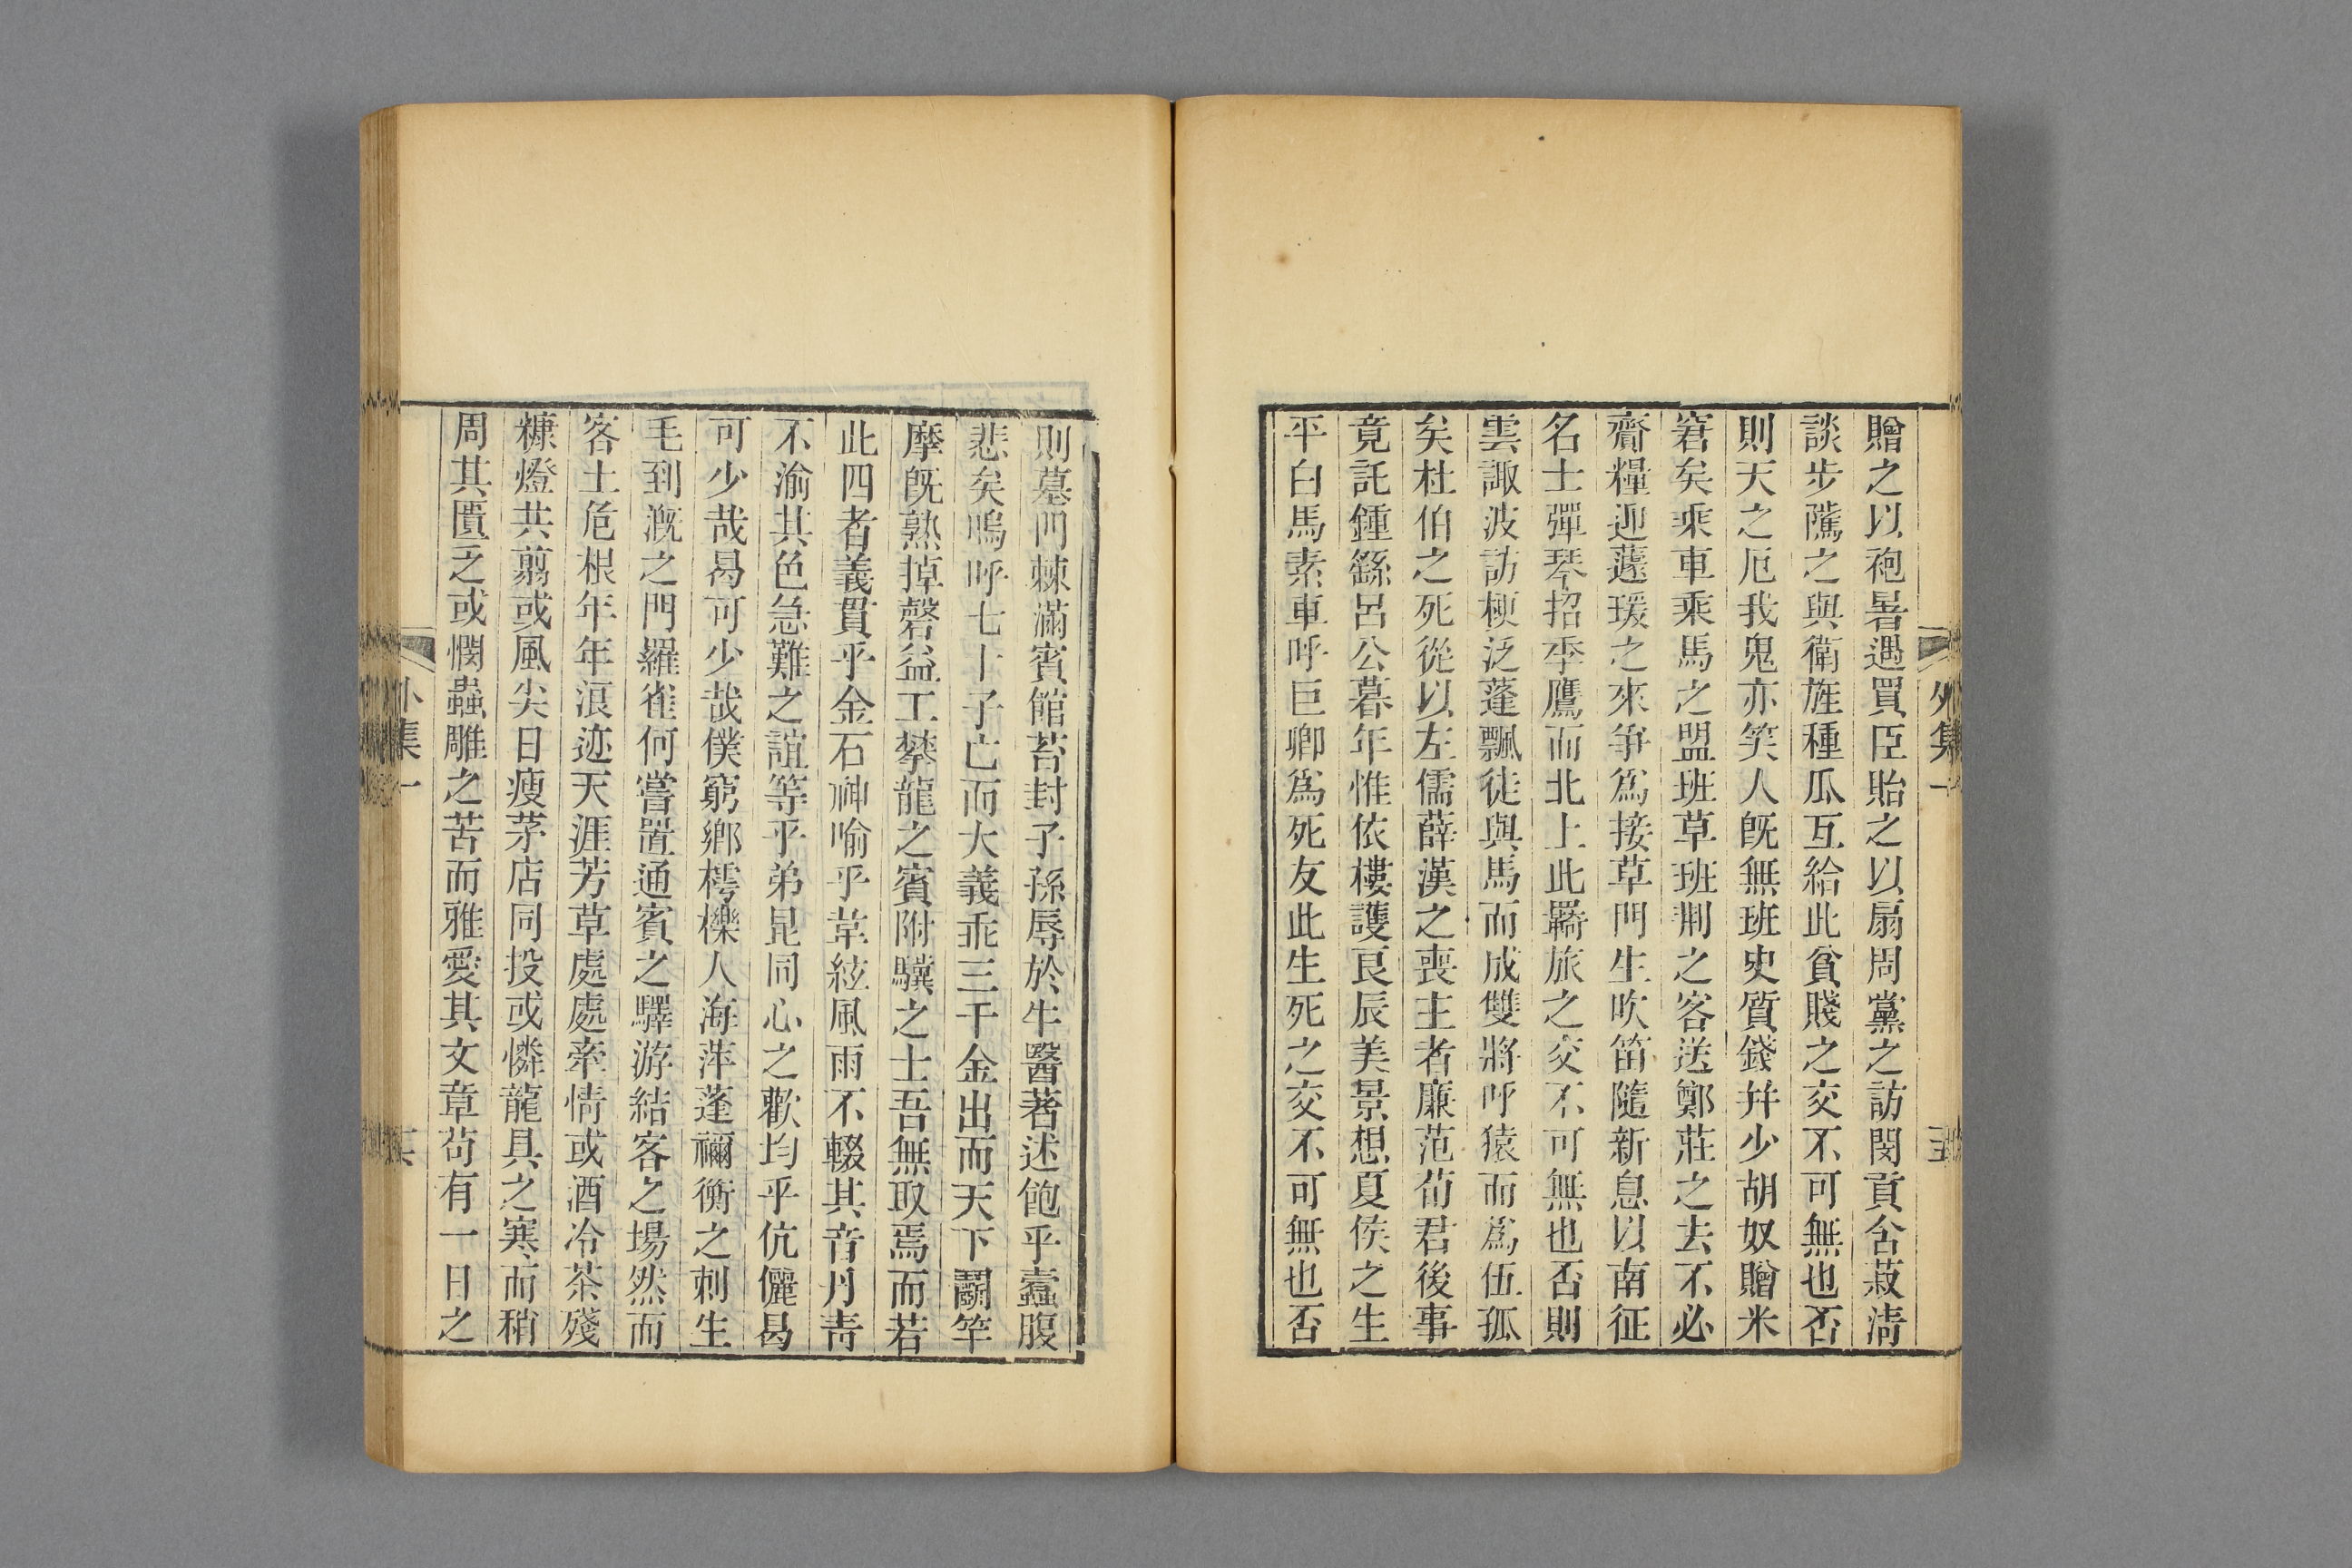 贈之以袍暑遇買臣貽之以扇周黨之訪閔貢含菽淸
談步隲之與衛旌種瓜互給此貧賤之交不可無也否
則天之厄我鬼亦笑人旣無班史質錢幷少胡奴贈米
窘矣乘車乘馬之盟班草班荆之客送鄭莊之去不必
齎糧迎蘧瑗之來爭爲接草門生吹笛隨新息以南征
名士彈琴招季鷹而北上此羇旅之交不可無也否則
雲諏波訪梗泛蓬飄徒與馬而成雙將呼猿而爲伍孤
矣杜伯之死從以左儒薛漢之喪主者廉范荀君後事
竟託鍾繇呂公暮年惟依樓護良辰美景想夏侯之生
平白馬素車呼巨卿爲死友此生死之交不可無也否
外集一
則墓門棘滿賓館苔封子孫辱於牛醫著述飽乎蠹腹
悲矣嗚呼七十子亡而大義乖三千金出而天下鬭竿
摩旣熟掉磬益工攀龍之賓附驥之士吾無取焉而若
此四者義貫乎金石神喻乎韋絃風雨不輟其音丹靑
不渝其色急難之誼等乎弟晜同心之歡均乎伉儷曷
可少哉曷可少哉僕窮鄕樗櫟人海萍蓬禰衡之刺生
毛到漑之門羅雀何嘗置通賓之驛游結客之場然而
客土危根年年浪迹天涯芳草處處牽情或酒冷茶殘
糠燈共翦或風尖日瘦茅店同投或憐龍具之寒而稍
周其匱乏或憫蟲雕之苦而雅愛其文章苟有一日之
外集一